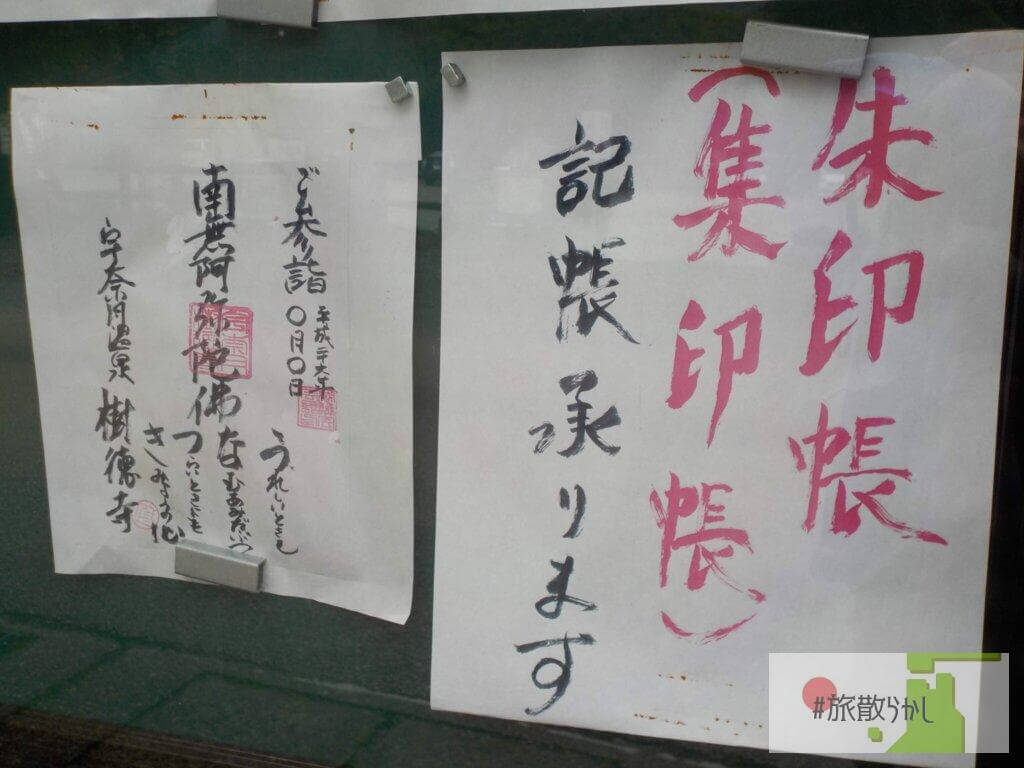 朱印帳
(集印帳)
記帳承ります
ご参詣
平成二十六年
〇月〇日
うれしいときも
南無阿弥陀佛
なむあみだぶつ
つらいときにも
宇奈月温泉 樹徳寺
#旅散らかし